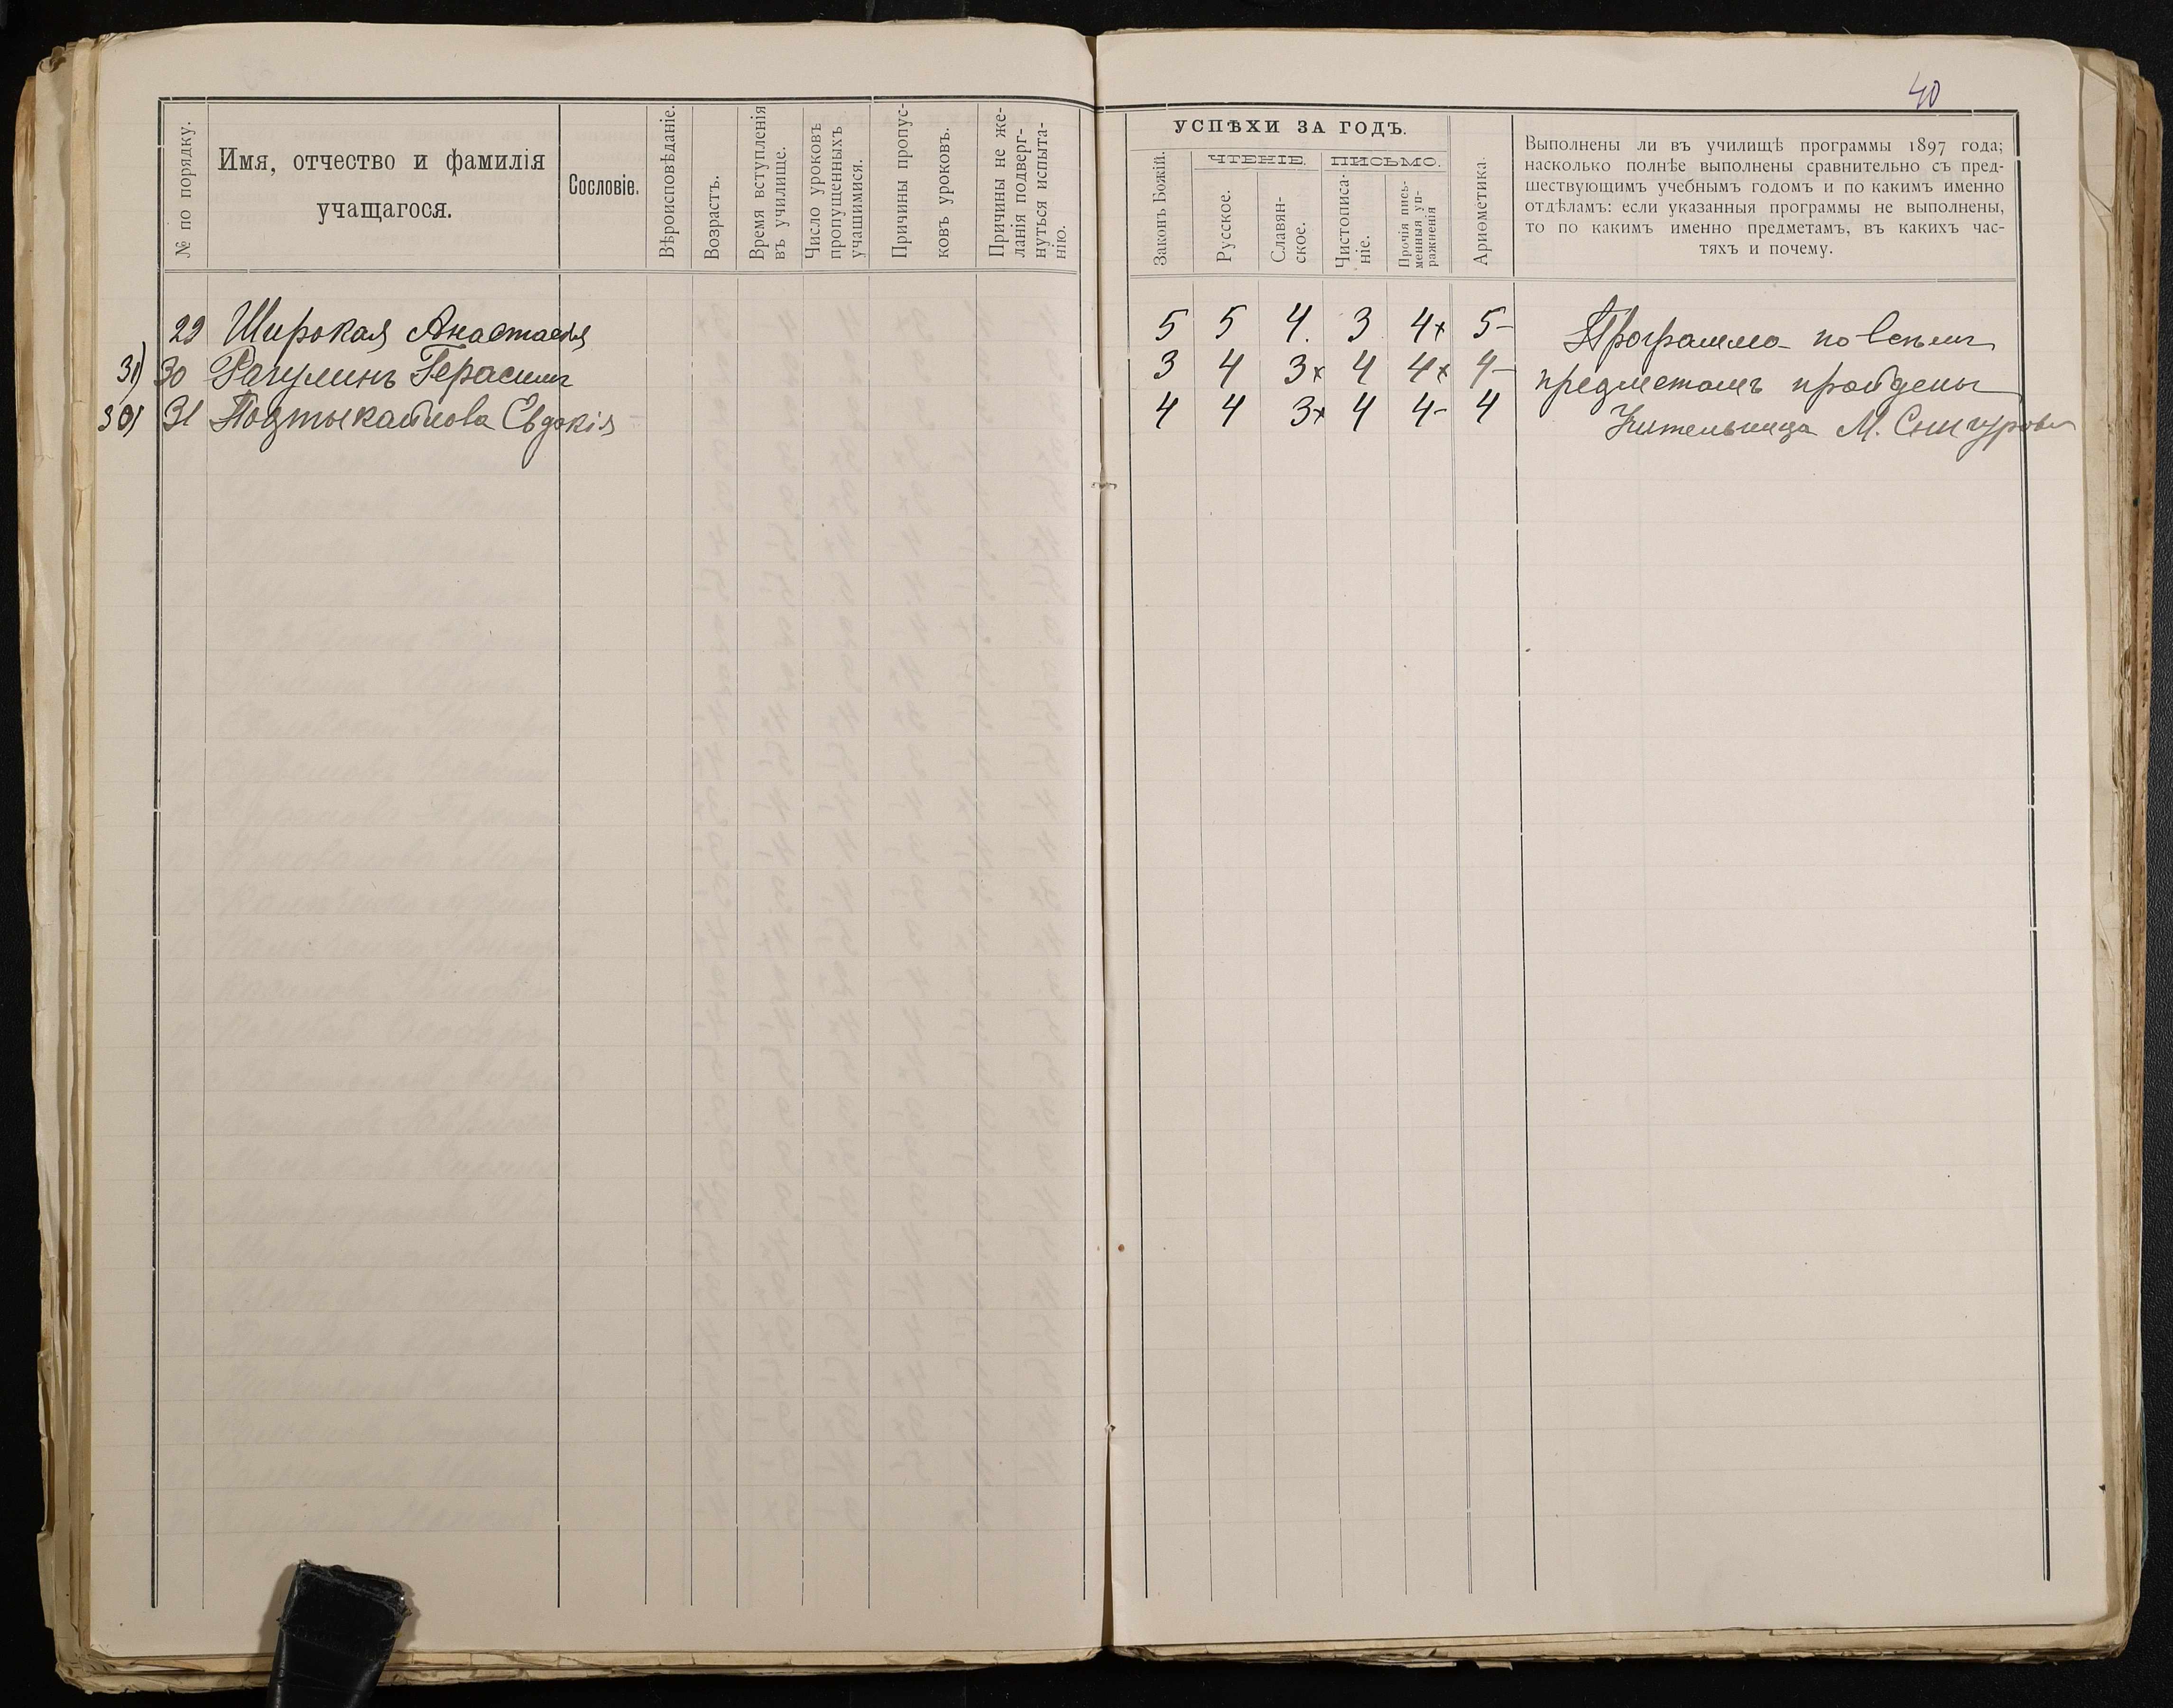 40
№ по порядку.
Имя, отчество и фамилія
учащагося.
Сословіе.
Вѣроисповѣданіе.
Возрастъ.
Время вступленія
въ училище.
Число уроковъ
пропущенныхъ
учащимися.
Причины пропус-
ковъ уроковъ.
Причины не же-
ланія подверг-
нуться испыта-
нію.
УСПѢХИ ЗА ГОДЪ.
ЧТЕНІЕ.
ПИСЬМО.
Законъ Божій.
Русское.
Славян-
ское.
Чистописа-
ніе.
Прочія пись-
менныя уп-
ражненія
Ариѳметика.
Выполнены ли въ училищѣ программы 1897 года;
насколько полнѣе выполнены сравнительно съ пред-
шествующимъ учебнымъ годомъ и по какимъ именно
отдѣламъ: если указанныя программы не выполнены,
то по какимъ именно предметамъ, въ какихъ час-
тяхъ и почему.
29 Широкая Анастасія 5 5 4. 3 4+ 5- Программа по всѣмъ
31) 30 Рагулинъ Герасимъ 3 4 3+ 4 4+ 4- предметамъ пройдены
30) 31 Подтыкайлова Евдокія 4 4 3+ 4 4- 4 Учительница М. Снигурова